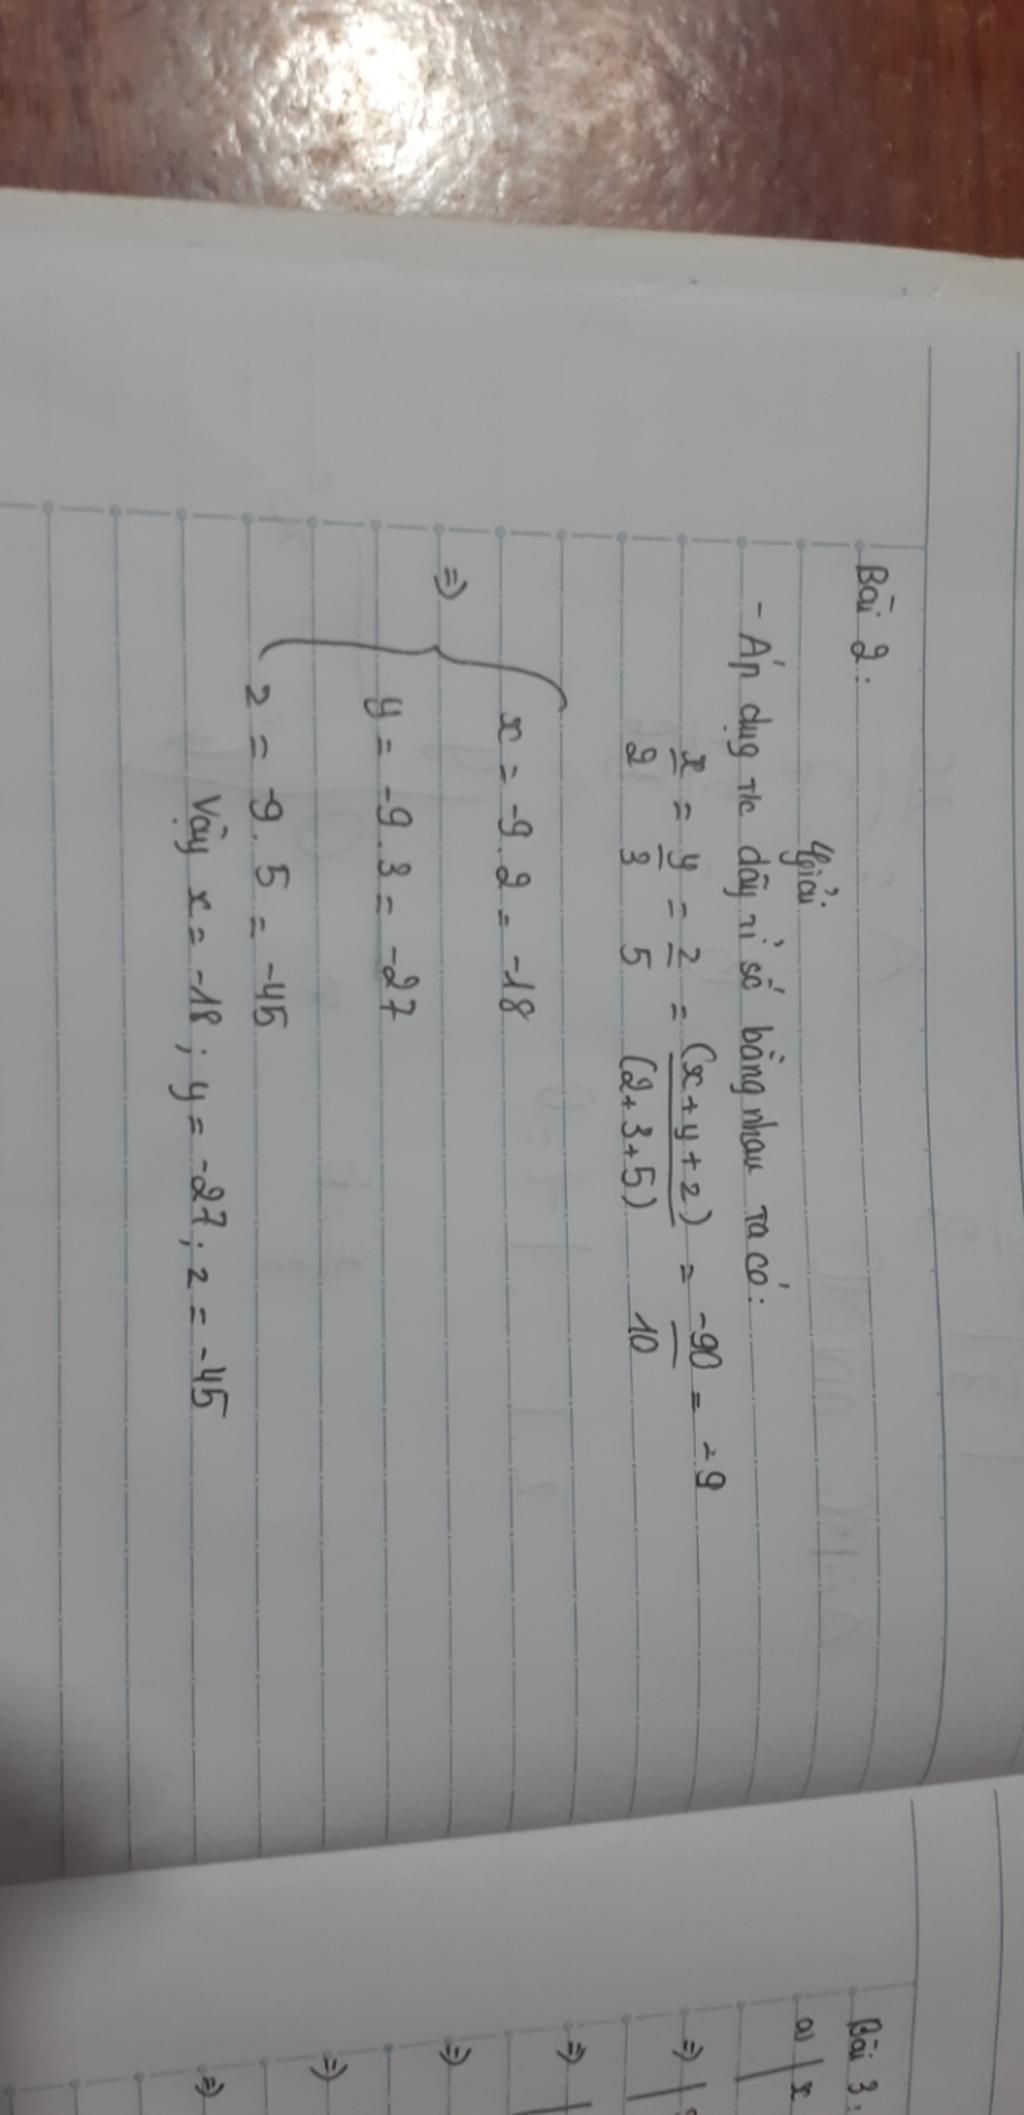 Bài 2:
Giải
- Áp dụg t/c dãy tỉ số bằng nhau ta có:
x/2 = y/3 = z/5 = (x+y+z)/(2+3+5) = -90/10 = -9
x = -9.2 = -18
=> { y = -9.3 = -27
z = -9.5 = -45
Vậy x = -18; y = -27; z = -45
Bài 3:
a) | x
=> |
=> |
=>
=>
=>